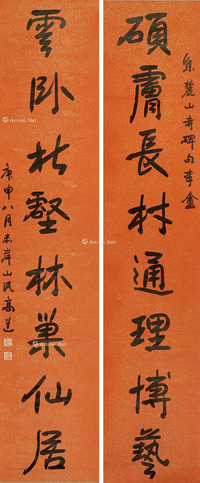 集麓山寺碑句李盦
碩膚長材通理博藝
雲卧壑林巢仙居
庚申八月赤岸山民高邕